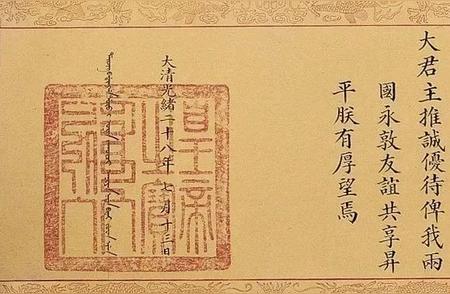 大君主推誠優待俾我兩
國永敦友誼共享昇
平朕有厚望焉
大清光緒二十八年七月十三日
皇帝
之寶